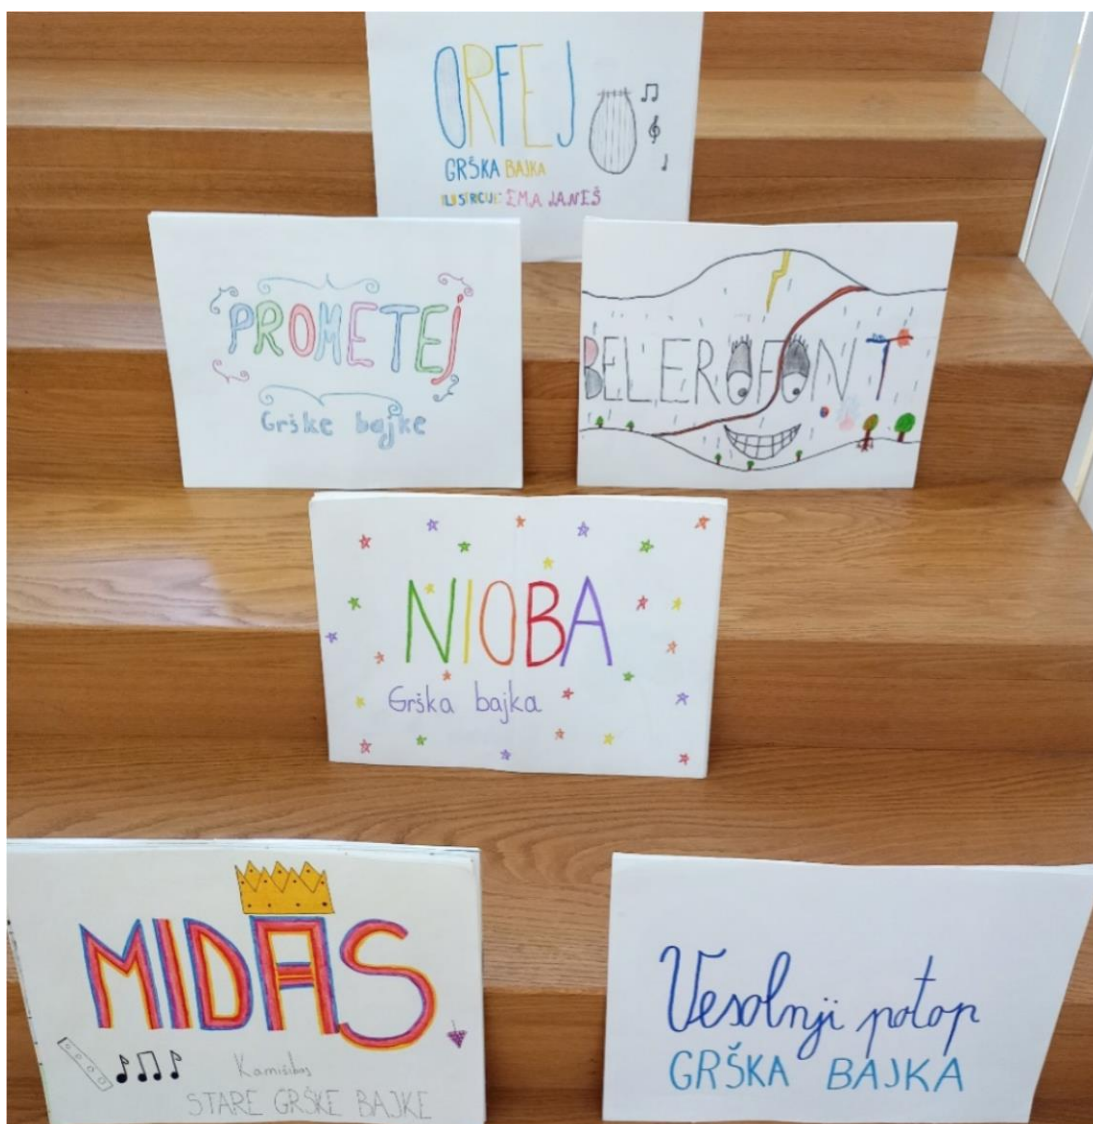 ORFEJ
GRŠKA BAJKA
ILUSTRCIJE: EMA JANEŠ
PROMETEJ
Grške bajke
BELEROFONT
NIOBA
Grška bajka
MIDAS
Kamišibaj
STARE GRŠKE BAJKE
Vesolnji potop
GRŠKA BAJKA